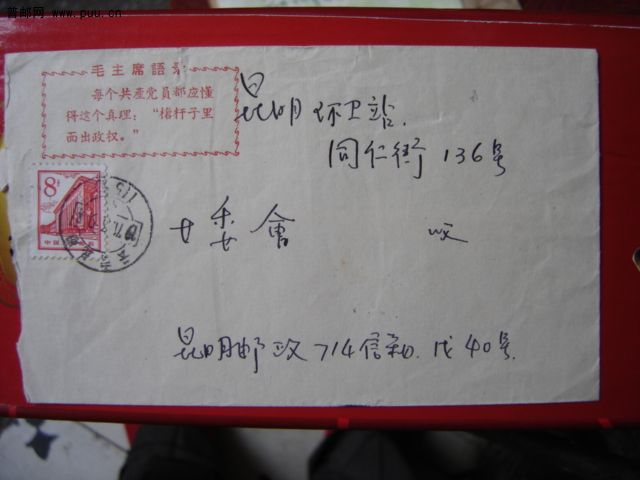 普邮网 www.puu.cn
毛主席語录
每个共產党員都应懂
得这个真理："槍杆子里
面出政权。"
昆明环卫站.
同仁街 136号
8
中国
委會 收
昆明邮政 714信箱. 戊40号.